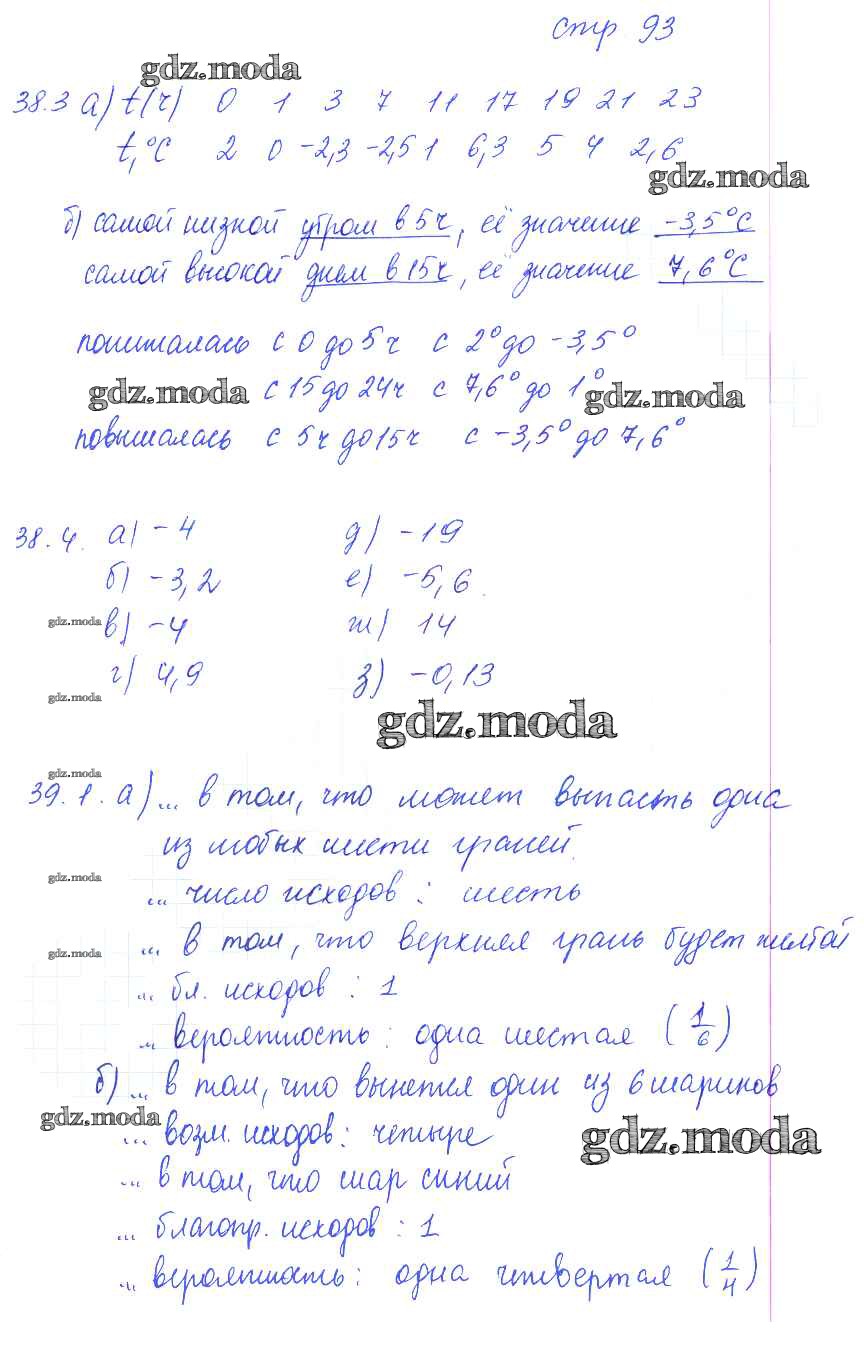 стр 93
gdz.moda
38.3 а) t(ч) 0 1 3 7 11 17 19 21 23
t,°C 2 0 -2,3 -2,5 1 6,3 5 4 2,6
gdz.moda
б) самой низкой утром в 5ч, её значение -3,5°C
самой высокой днем в 15ч, её значение 7,6°C
понижалась с 0 до 5ч с 2° до -3,5°
gdz.moda с 15 до 24ч с 7,6° до 1° gdz.moda
повышалась с 5ч до 15ч с -3,5° до 7,6°
38.4. а) -4 д) -19
б) -3,2 е) -5,6
gdz.moda в) -4 ж) 14
г) 4,9 з) -0,13
gdz.moda
gdz.moda
gdz.moda
39.1. а) ... в том, что может выпасть одна
из любых шести граней.
gdz.moda
... число исходов: шесть
gdz.moda ... в том, что верхняя грань будет желтой
... бл. исходов: 1
... вероятность: одна шестая (1/6)
б) ... в том, что вынется один из 6 шариков
gdz.moda
... возм. исходов: четыре gdz.moda
... в том, что шар синий
... благопр. исходов: 1
... вероятность: одна четвертая (1/4)